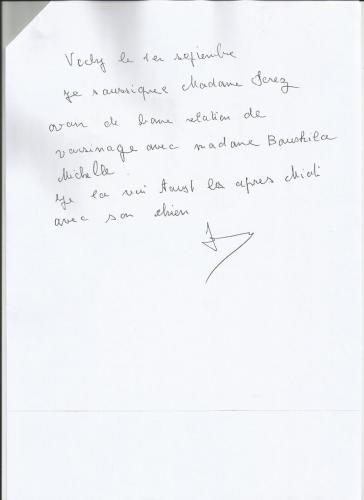 Vichy le 1er septembre
je saussiquee Madame Jerez
avan de bone relation de
vaisinage avec madame Boushila
Michelle
je la voi toust les apres Midi
avec son chien